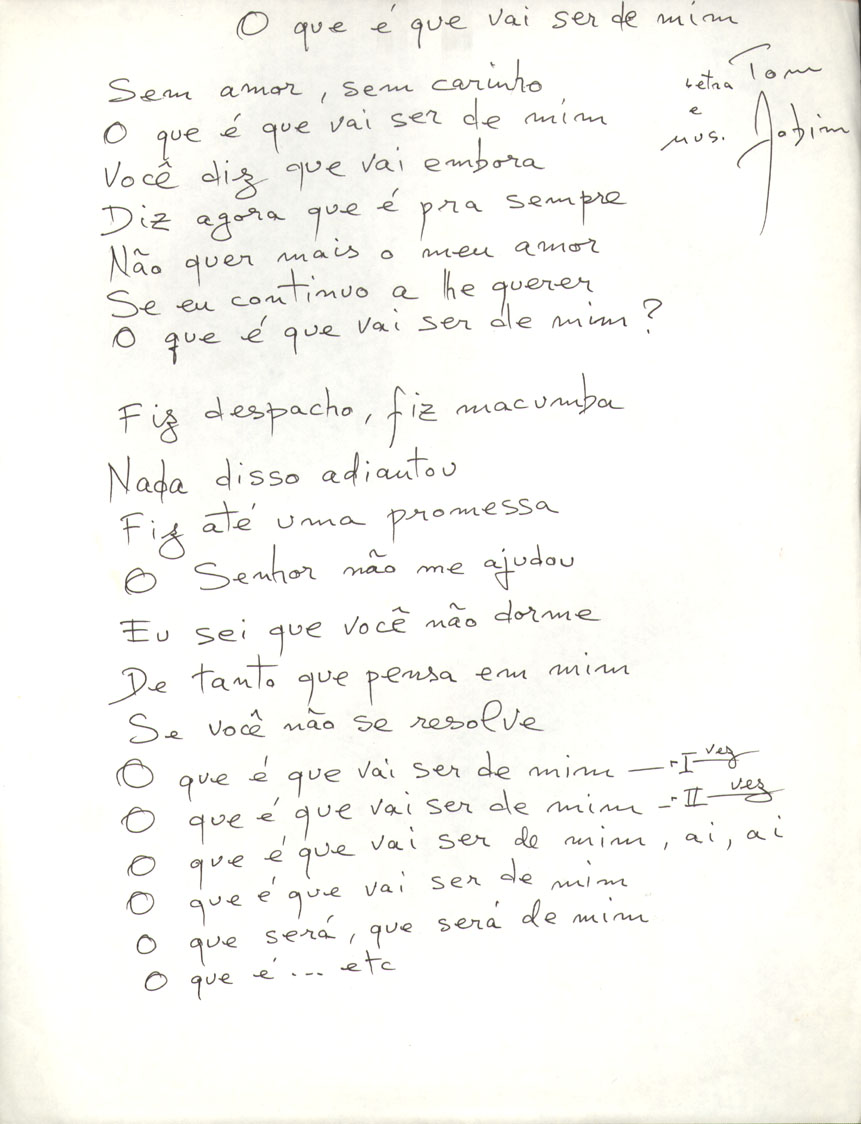 O que é que vai ser de mim
letra Tom
e
mus. Jobim
Sem amor, sem carinho
O que é que vai ser de mim
Você diz que vai embora
Diz agora que é pra sempre
Não quer mais o meu amor
Se eu continuo a lhe querer
O que é que vai ser de mim?
Fiz despacho, fiz macumba
Nada disso adiantou
Fiz até uma promessa
O Senhor não me ajudou
Eu sei que você não dorme
De tanto que pensa em mim
Se você não se resolve
O que é que vai ser de mim — I vez
O que é que vai ser de mim — II vez
O que é que vai ser de mim, ai, ai
O que é que vai ser de mim
O que será, que será de mim
O que é ... etc